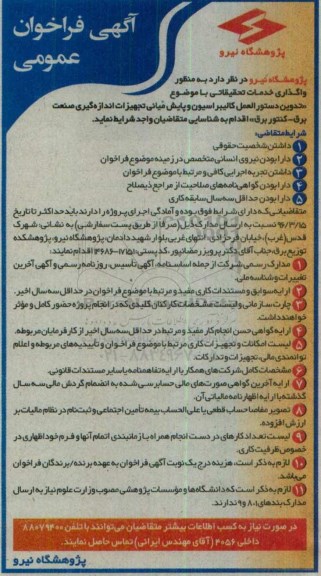 آگهی فراخوان
عمومی
پژوهشگاه نیرو
پژوهشگاه نیرو در نظر دارد به منظور
واگذاری خدمات تحقیقاتی با موضوع
«تدوین دستورالعمل کالیبراسیون و پایش میانی تجهیزات اندازه‌گیری صنعت
برق-کنتور برق» اقدام به شناسایی متقاضیان واجد شرایط نماید.
شرایط متقاضی:
۱ داشتن شخصیت حقوقی
۲ دارا بودن نیروی انسانی متخصص در زمینه موضوع فراخوان
۳ داشتن تجربه اجرایی کافی و مرتبط با موضوع فراخوان
۴ دارا بودن گواهی‌نامه‌های صلاحیت از مراجع ذیصلاح
۵ دارا بودن حداقل سه سال سابقه کاری
متقاضیانی که دارای شرایط فوق بوده و آمادگی اجرای پروژه را دارند باید حداکثر تا تاریخ
۹۶/۳/۱۵ نسبت به ارسال مدارک ذیل (صرفا از طریق پست سفارشی) به نشانی: شهرک
قدس (غرب)، خیابان فرحزادی، انتهای غربی بلوار شهید دادمان، پژوهشگاه نیرو، پژوهشکده
توزیع برق، جناب آقای دکتر پرویز رمضانپور، کدپستی: ۱۷۱۵۱-۱۴۶۸۶ اقدام نمایند:
۱ مدارک رسمی شرکت از جمله اساسنامه، آگهی تأسیس، روزنامه رسمی و آگهی آخرین
تغییرات و شناسه ملی.
۲ ارایه سوابق و مستندات کاری مفید و مرتبط با موضوع فراخوان در حداقل سه سال اخیر.
۳ چارت سازمانی و لیست مشخصات کارکنان کلیدی که در انجام پروژه حضور کامل و مؤثر
خواهند داشت.
۴ ارایه گواهی حسن انجام کار مفید و مرتبط در حداقل سه سال اخیر از کارفرمایان مربوطه.
۵ لیست امکانات و تجهیزات کاری مرتبط با موضوع فراخوان و تأییدیه‌های مربوطه و اعلام
توانمندی مالی، تجهیزات و تدارکات.
۶ مشخصات کامل شرکت‌های همکار با ارایه تفاهم‌نامه یا سایر مستندات قانونی.
۷ ارایه آخرین گواهی صورت‌های مالی حسابرسی شده به انضمام گردش مالی سه سال
گذشته یا ارایه اظهارنامه مالیاتی آن.
۸ تصویر مفاصا حساب قطعی یا علی الحساب بیمه تأمین اجتماعی و ثبت‌نام در نظام مالیات بر
ارزش افزوده.
۹ لیست تعداد کارهای در دست انجام همراه با زمانبندی اتمام آنها و فرم خوداظهاری در
خصوص ظرفیت کاری.
۱۰ لازم به ذکر است، هزینه درج یک نوبت آگهی فراخوان به عهده برنده/برندگان فراخوان
می‌باشد.
۱۱ لازم به ذکر است که دانشگاه‌ها و مؤسسات پژوهشی مصوب وزارت علوم نیاز به ارسال
مدارک بندهای ۱، ۸ و ۹ ندارند.
در صورت نیاز به کسب اطلاعات بیشتر متقاضیان می‌توانند با تلفن ۸۸۰۷۹۴۰۰
داخلی ۴۰۵۶ (آقای مهندس ایرانی) تماس حاصل نمایند.
پژوهشگاه نیرو